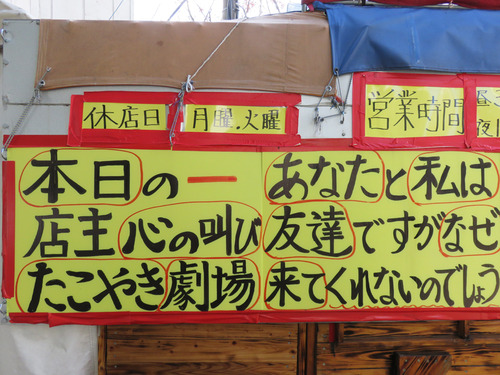 休店日
月曜.火曜
営業時間
昼
夜
本日の一
店主心の叫び
たこやき劇場
あなたと私は
友達ですがなぜ
来てくれないのでしょう